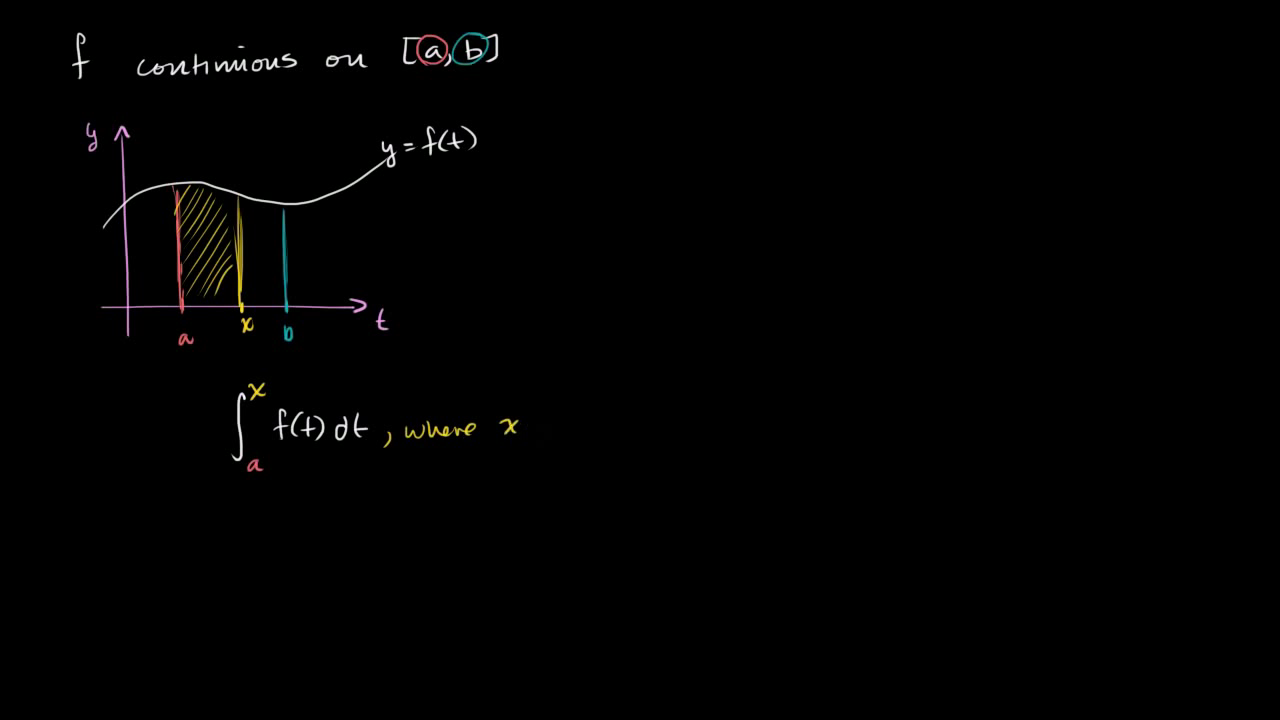 f continuous on [a, b]
y
y = f(t)
a
x
b
t
∫ₐˣ f(t) dt , where x